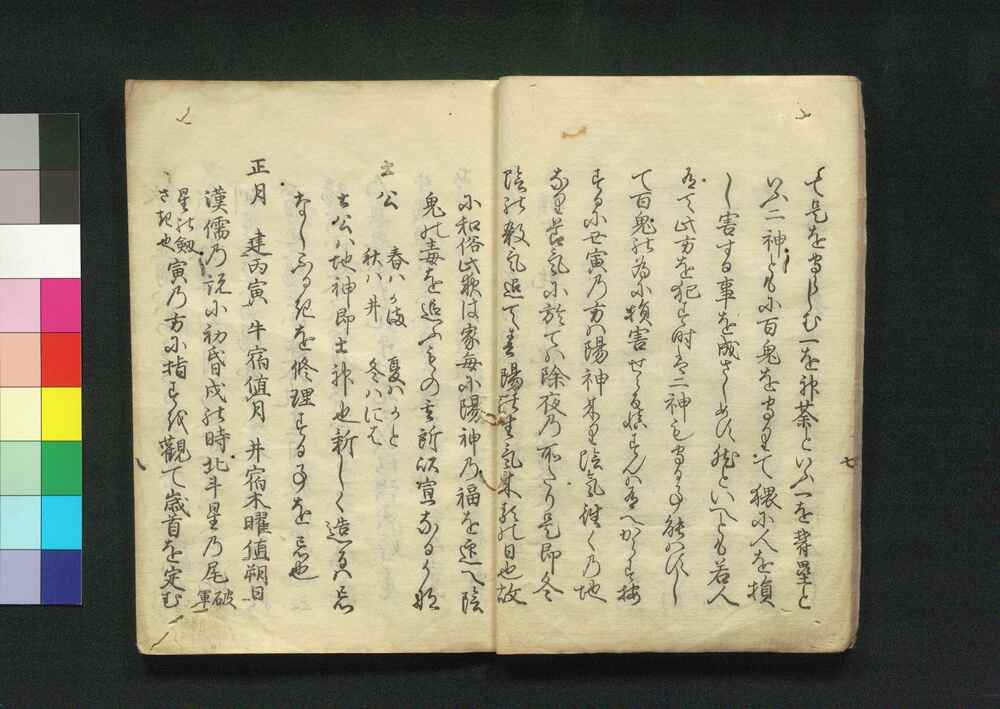 て是を守らしむ一を神荼といふ一を欝塁と
いふ二神ともに百鬼を守りて猥に人を損
し害する事を成さしめす然といへとも若人
有て此方を犯す時は二神も守る事能はすし
て百鬼の為に損害せらる慎すんは有へからす按
するに丑寅の方は陽神来り陰気往くの地
なり節気に於ては除夜の所たり是即冬
陰の殺気退て春陽の生気来るの日也故
に和俗此歳は家毎に陽神の福を迎へ陰
鬼の毒を追ふもの其所以宜なるか那
土公 春ハかま 夏ハかと
秋ハ井 冬ハにわ
土公ハ地神即土神也新しく造るハ忌
なしふるきを修理する事を忌也
正月 建丙寅 牛宿値月 井宿木曜値朔日
漢儒乃説に初昏戌の時北斗星乃尾 破軍
星の剱さき也 寅乃方に指すを観て歳首を定む
七